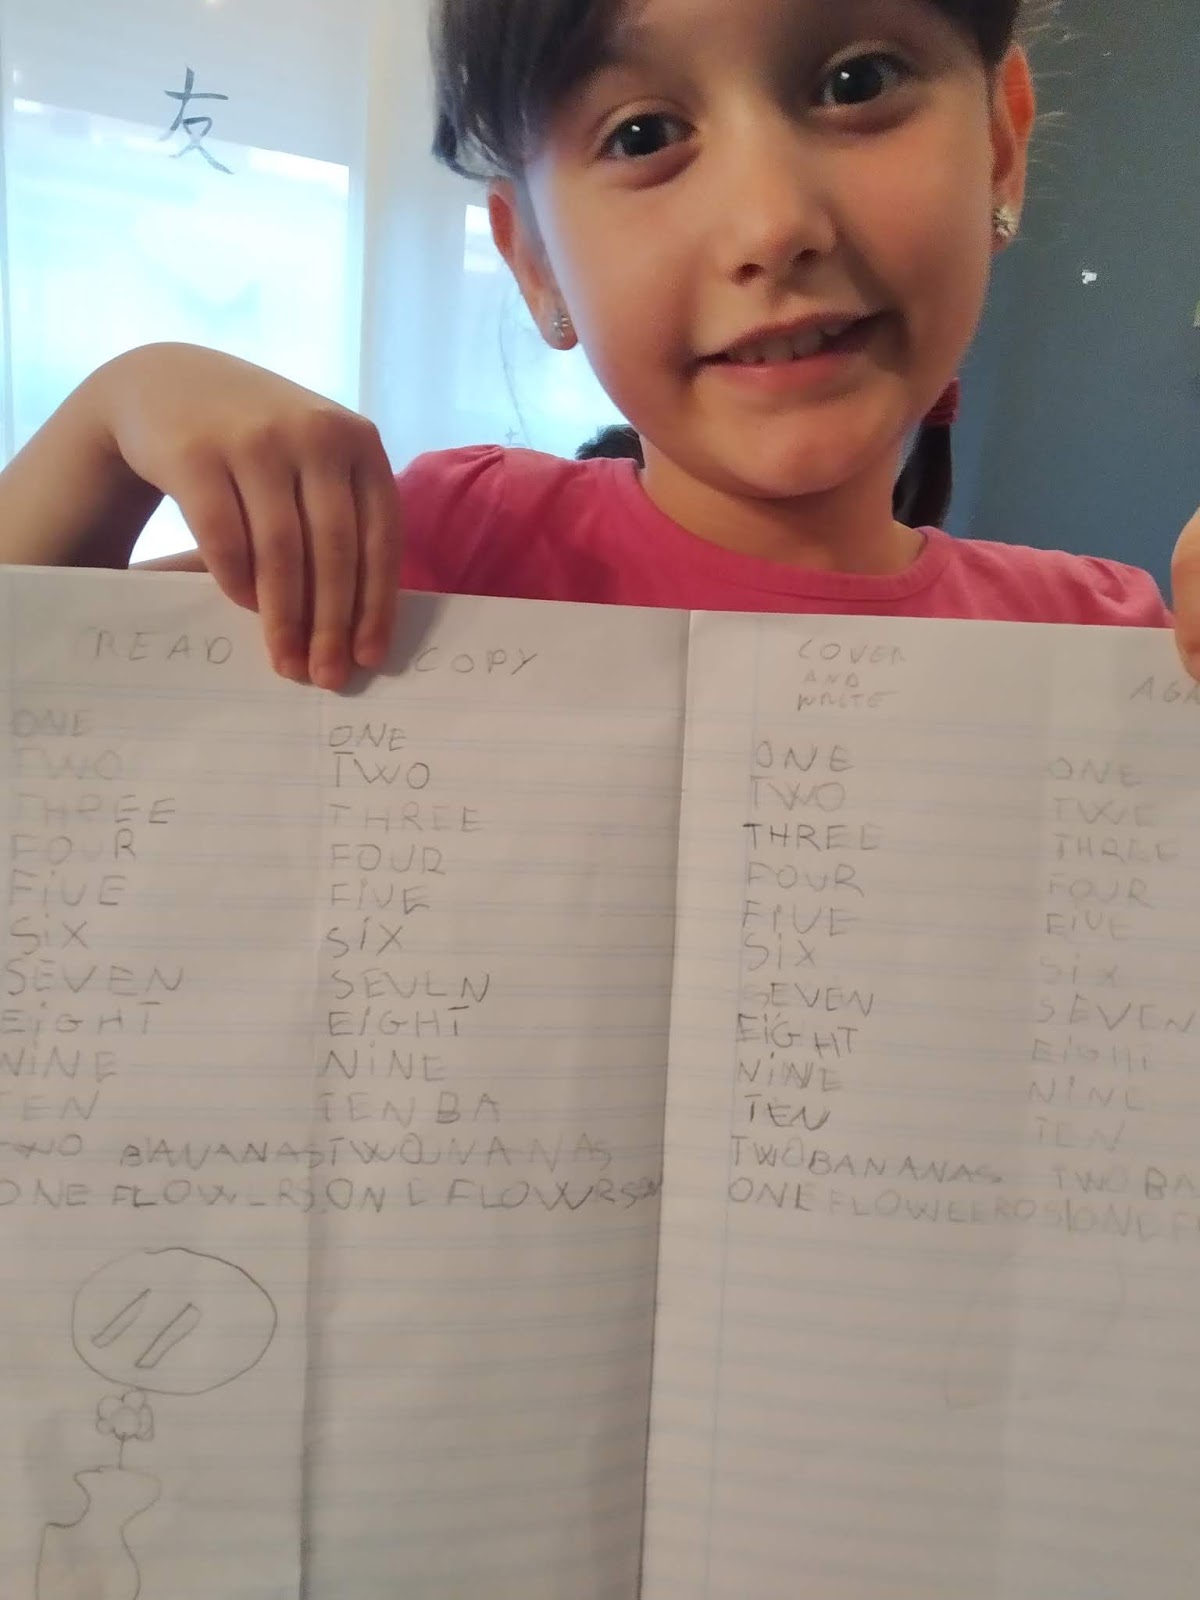 友
READ COPY
COVER
AND
WRITE
ONE ONE ONE ONE
TWO TWO TWO TWE
THREE THREE THREE THREE
FOUR FOUR FOUR FOUR
FiVE FiVE FIVE FiVE
SiX SiX SiX SiX
SEVEN SEVLN SEVEN SEVEN
EiGHT EIGHT EiGHT EIGHT
NiNE NiNE NiNE NINE
TEN BA TEN TEN
TWO BANANAS TWO NANAS TWO BANANAS TWO BA
ONE FLOWERS ONE FLOWRS ONE ONE